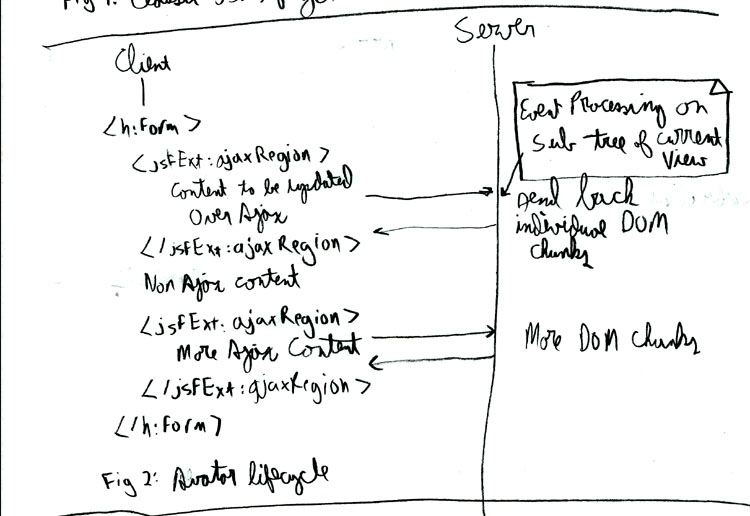 Fig 1:
Server
Client
<h:Form>
<jsfExt:ajaxRegion>
Content to be updated
Over Ajax
</jsfExt:ajaxRegion>
Non Ajax content
<jsfExt:ajaxRegion>
More Ajax Content
</jsfExt:ajaxRegion>
</h:Form>
Fig 2: Avatar lifecycle
Event Processing on
Sub tree of current
View
Send back
individual DOM
chunks
More DOM chunks